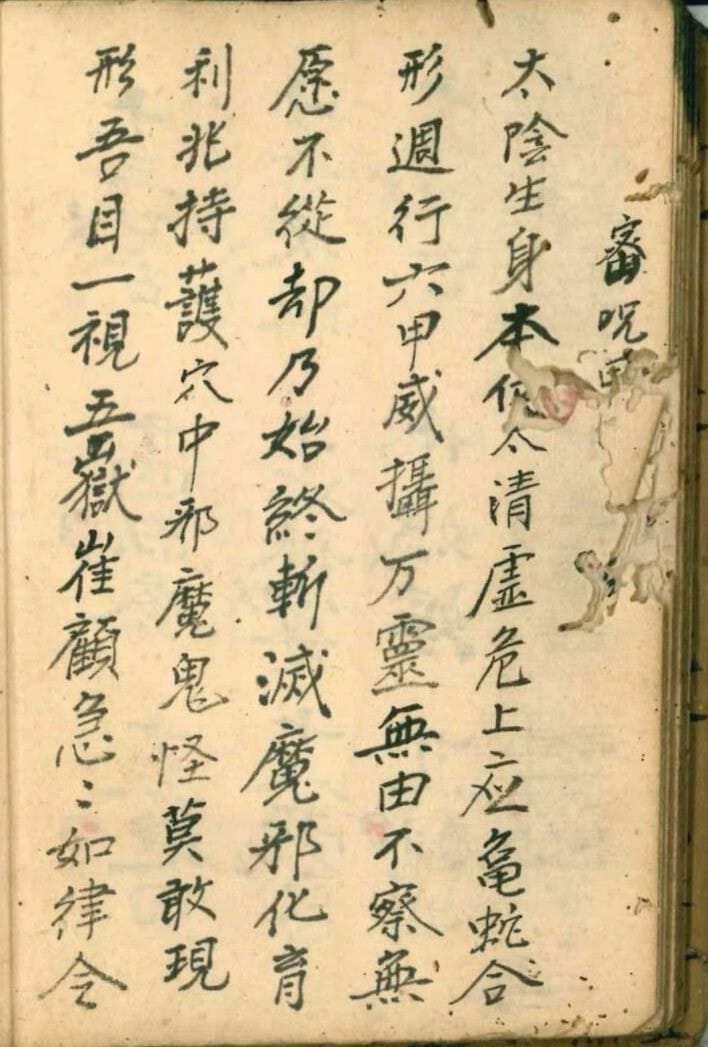 審呪
太陰生身本位太清虛危上应龜蛇合
形週行六甲威攝万靈無由不察無
愿不從却乃始終斬滅魔邪化育
利兆持護穴中邪魔鬼怪莫敢現
形吾目一視五嶽崔顧急〻如律令